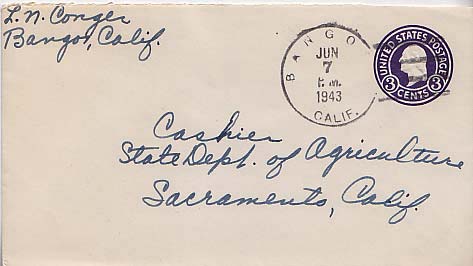 L. N. Conger
Bangor, Calif.
BANGO
JUN
7
P.M.
1943
CALIF.
UNITED STATES POSTAGE
3 CENTS 3
Cashier
State Dept. of Agriculture
Sacramento, Calif.